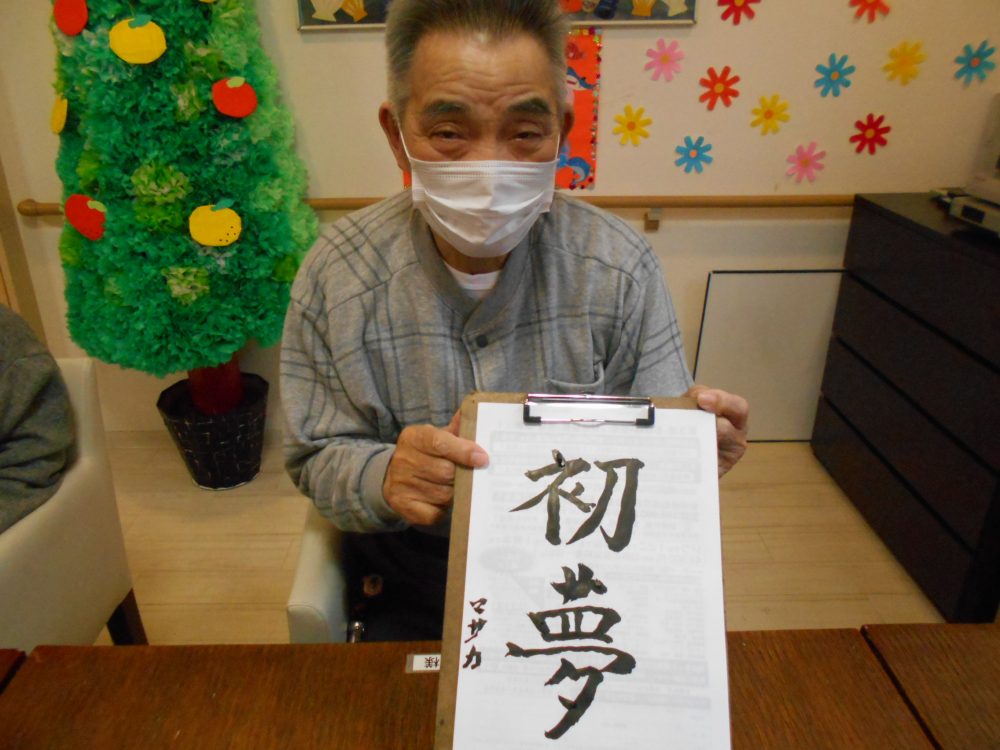 初夢
マサカ
様